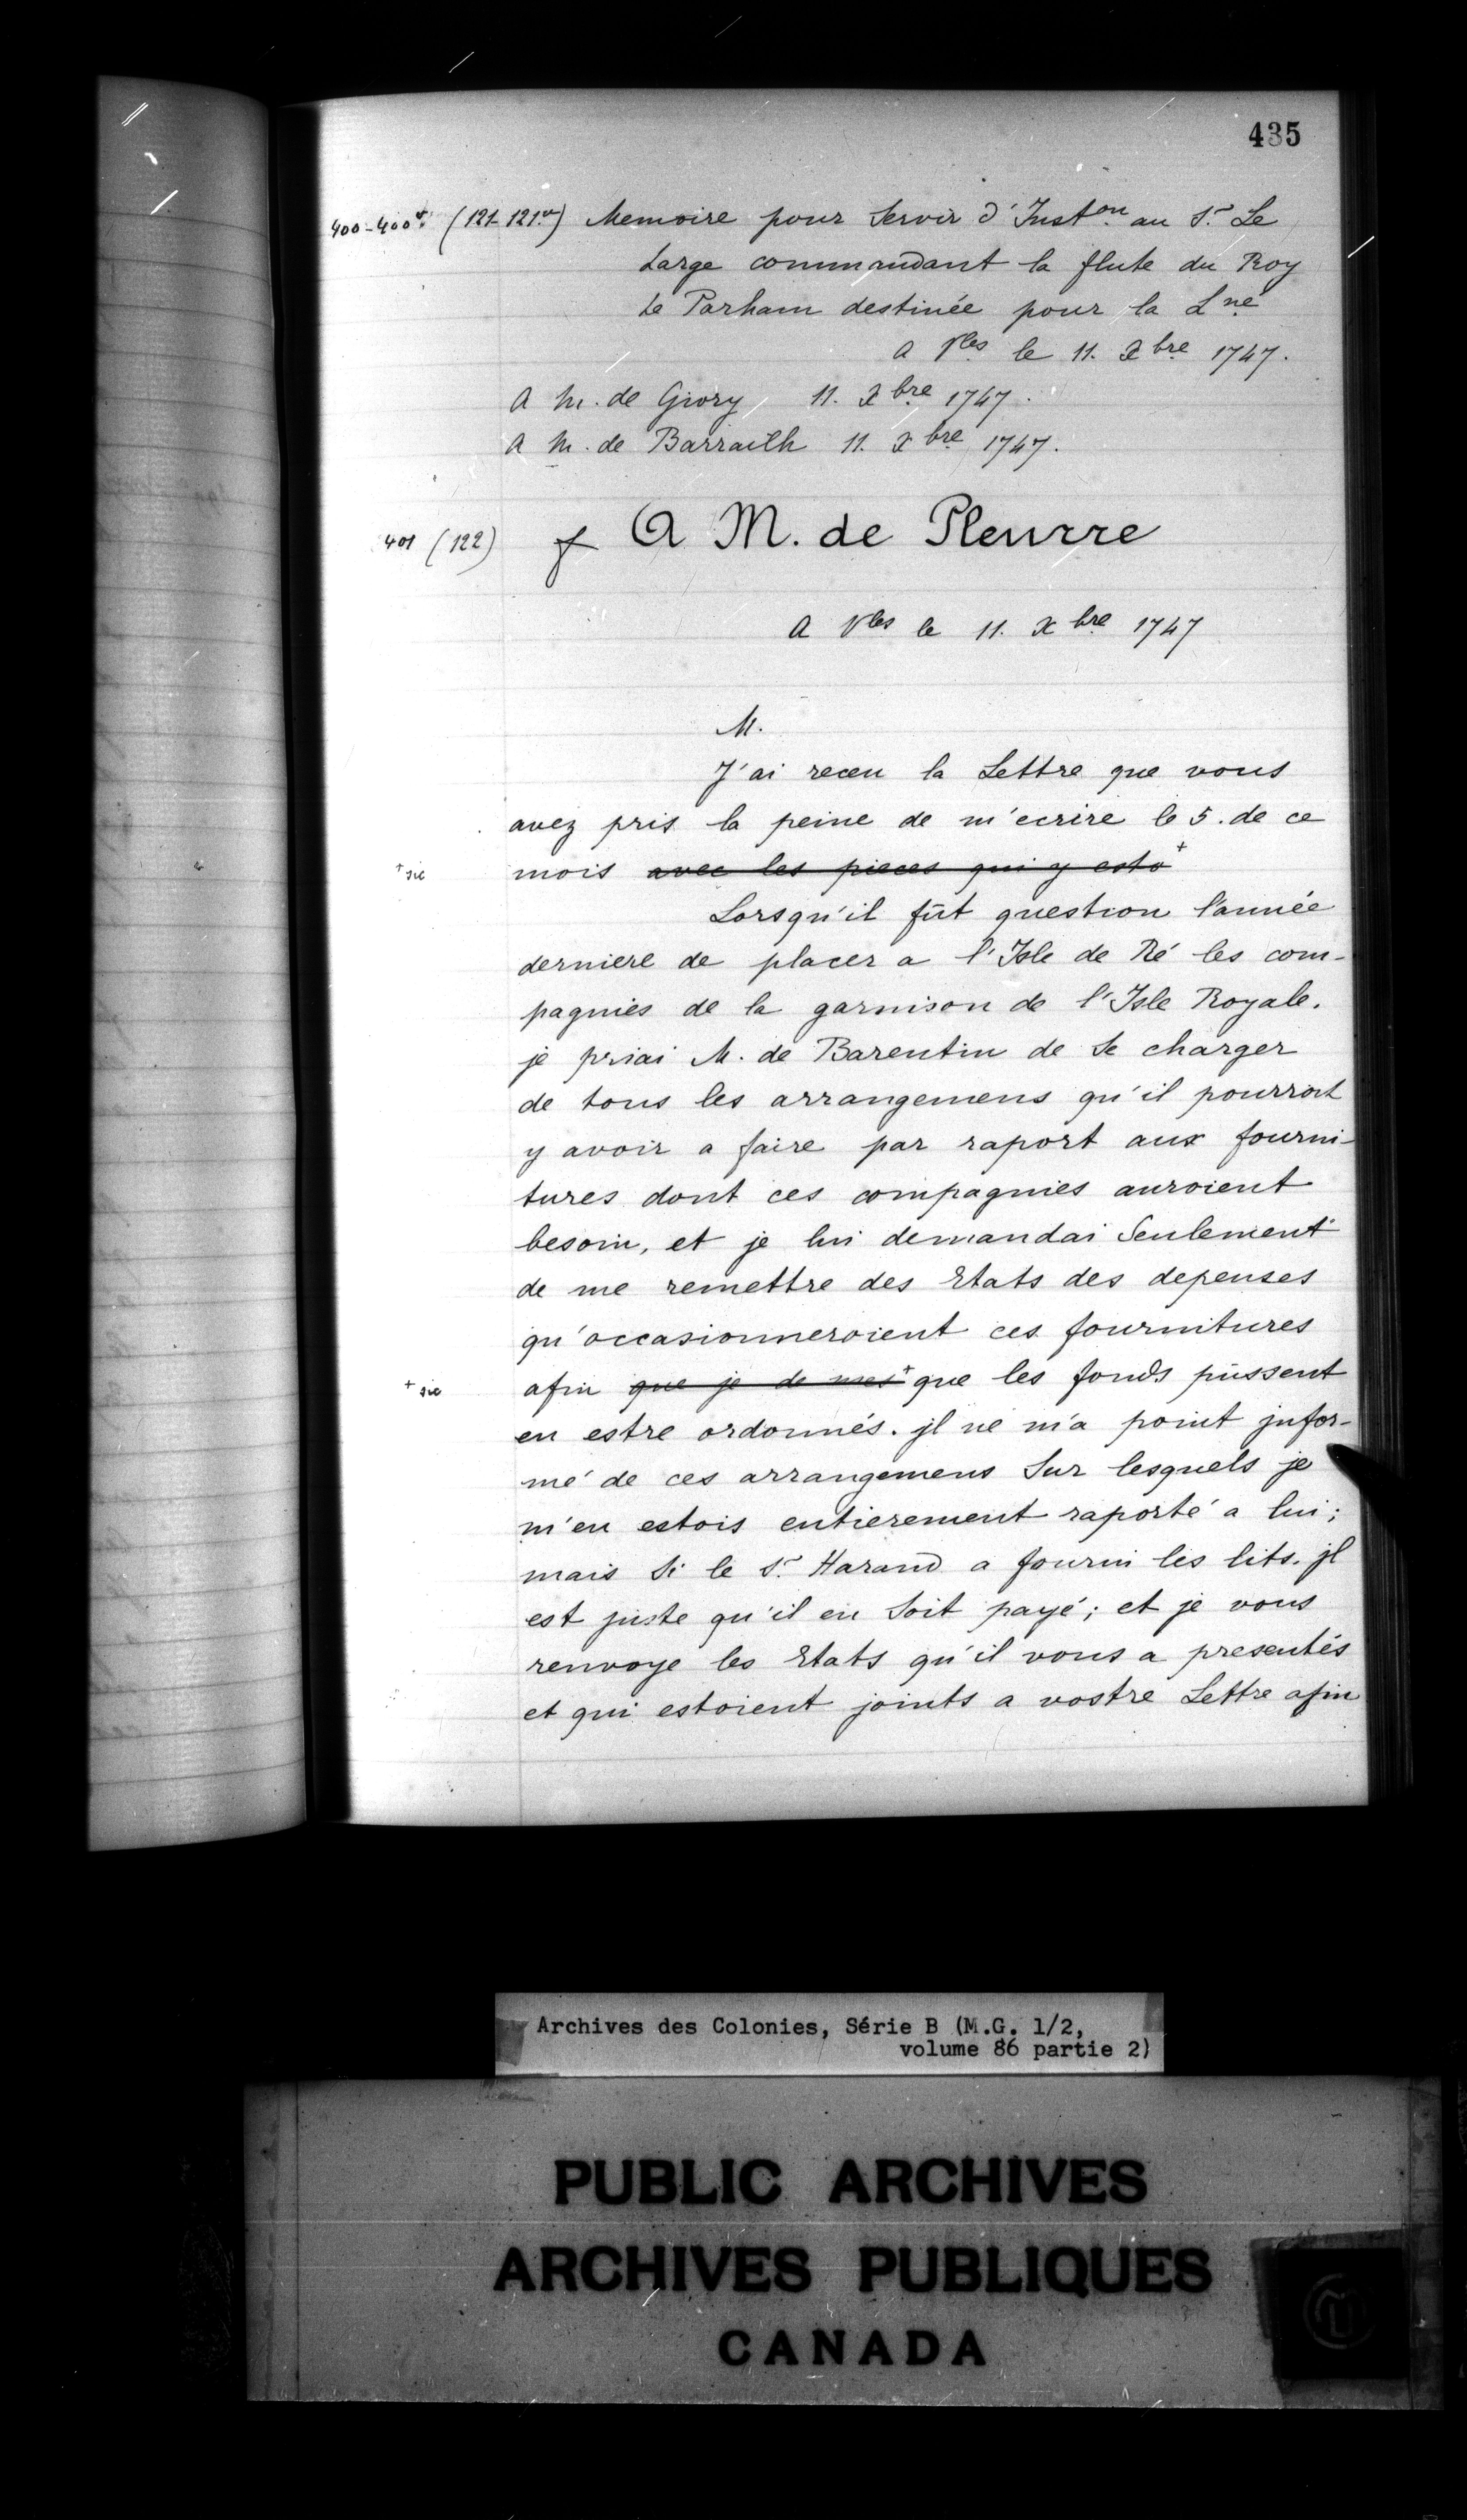 435
400-400vo (121-121vo) Memoire pour Servir d'Inston au Sr Le
Large commandant la flute du Roy
Le Parham destinée pour la Lne
A Vles le 11. Xbre 1747.
A M. de Givry 11. Xbre 1747.
A M. de Barrailh 11. Xbre 1747.
401 (122) A M. de Pleurre
A Vles le 11. Xbre 1747
M.
J'ai receu la Lettre que vous
avez pris la peine de m'ecrire le 5. de ce
+sic mois avec les pieces qui y esto+
Lorsqu'il fût question l'année
derniere de placer a l'Isle de Ré les com-
pagnies de la garnison de l'Isle Royale.
je priai M. de Barentin de Se charger
de tous les arrangemens qu'il pourroit
y avoir a faire par raport aux fourni-
tures dont ces compagnies auroient
besoin, et je lui demandai Seulement
de me remettre des Etats des depenses
qu'occasionneroient ces fournitures
+ sic afin que je de mes+ que les fonds pûssent
en estre ordonnés. jl ne m'a point jnfor-
mé de ces arrangemens Sur lesquels je
m'en estois entierement raporté a lui;
mais Si le Sr Harand a fourni les lits. jl
est juste qu'il en Soit payé; et je vous
renvoye les Etats qu'il vous a presentés
et qui estoient joints a vostre Lettre afin
Archives des Colonies, Série B (M.G. 1/2,
volume 86 partie 2)
PUBLIC ARCHIVES
ARCHIVES PUBLIQUES
CANADA